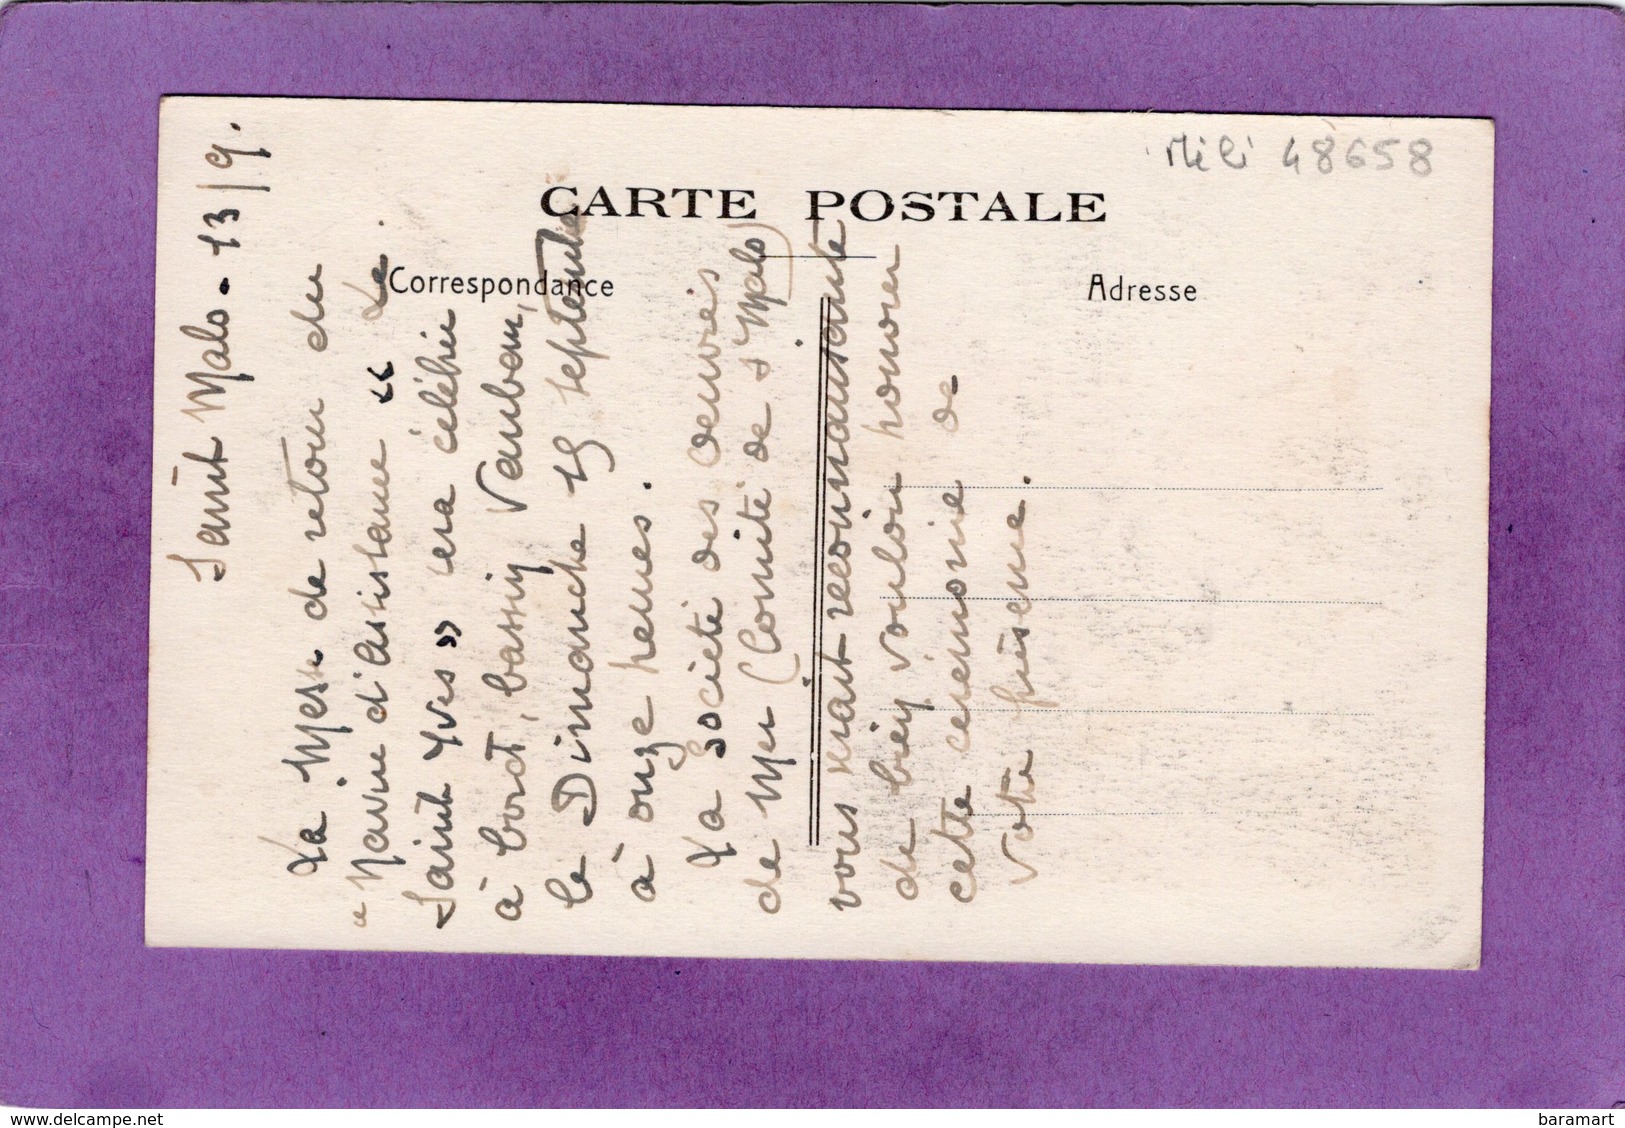 Mili 48658
CARTE POSTALE
Correspondance
Adresse
Saint Malo - 13/9.
La Messe de retour du
"Navire d'Assistance "Le
Saint Yves" sera célébrée
à bord, bassin Vauban,
le Dimanche 15 septembre
à onze heures.
La Société des Oeuvres
de Mer (Comité de St Malo)
vous serait reconnaissante
de bien vouloir honorer
cette cérémonie de
votre présence.
delcampe.net
baramart